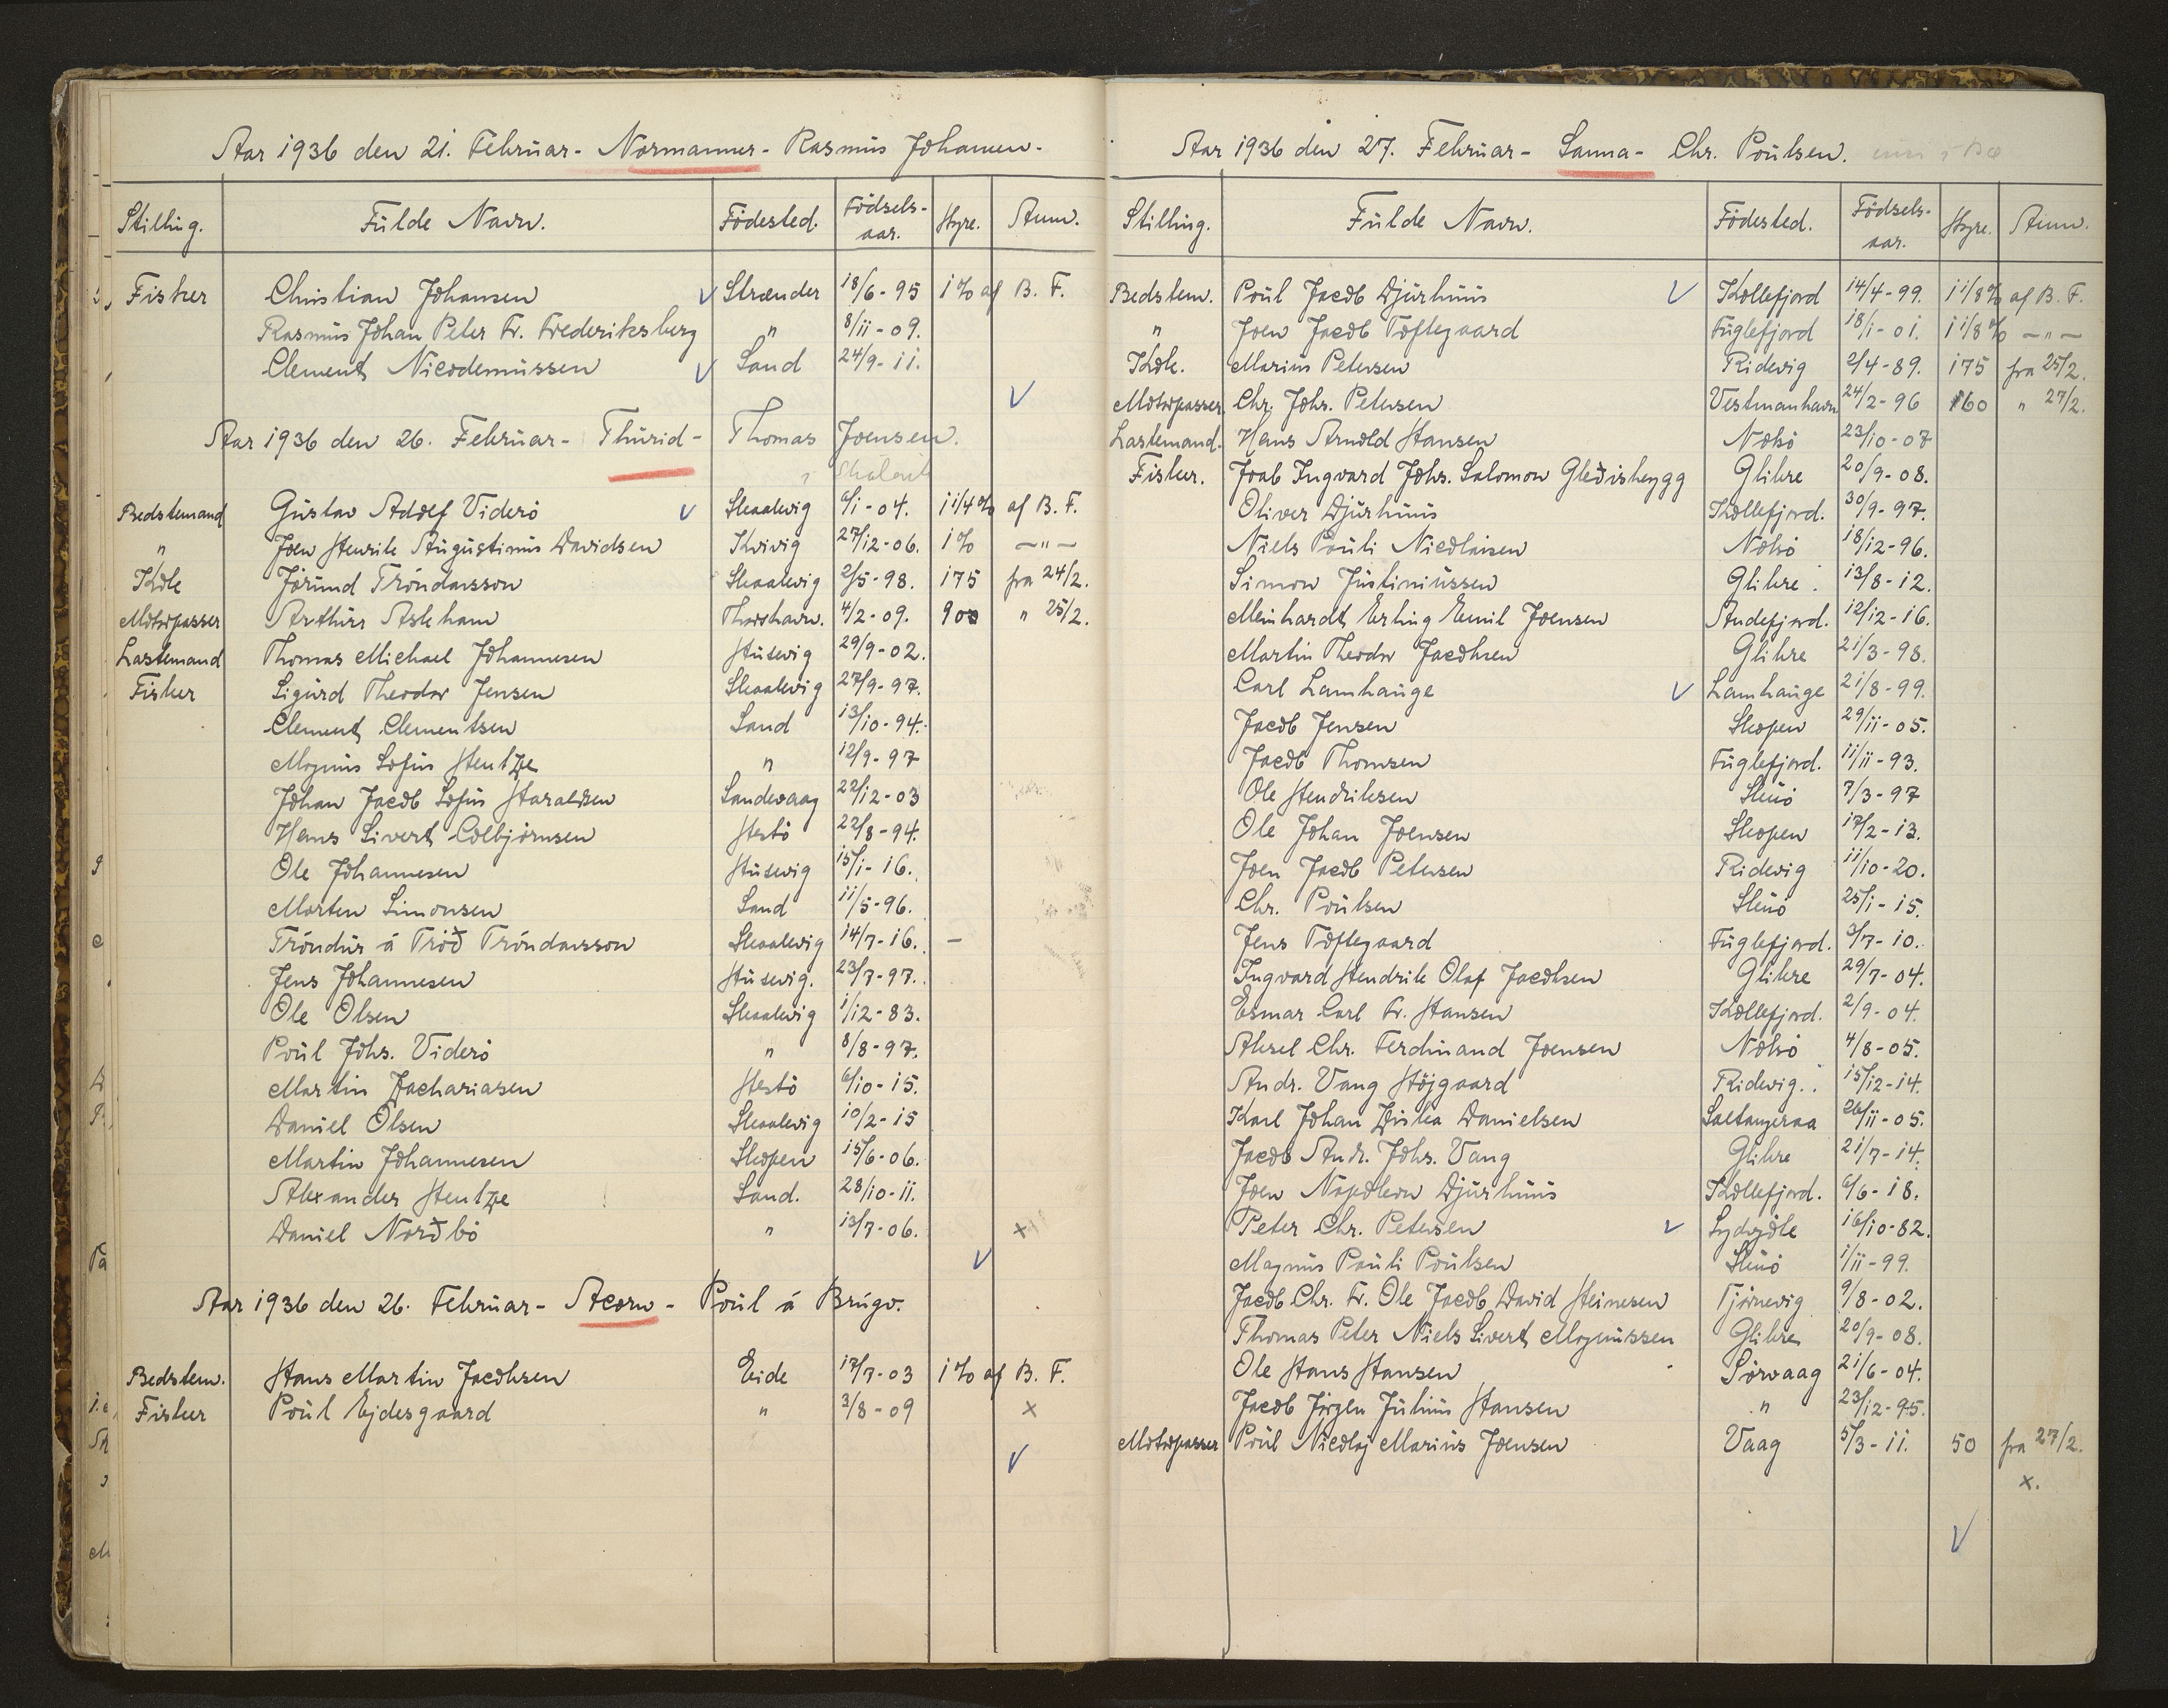 Aar 1936 den 21. Februar - Normanner - Rasmus Johansen -
Stilling. Fulde Navn. Födested. Födsels-aar. Hyre. Anm.
Fisker Christian Johansen Strænder 18/6-95 1% af B. F.
Rasmus Johan Peter Fr. Frederiksberg " 8/11-09.
Clement Nicodemussen Sand 24/9-11.
Aar 1936 den 26. Februar - Thurid - Thomas Joensen.
Bedstemand Gustav Adolf Viderö Skaalevig 6/1-04. 1 1/4% af B. F.
" Joen Henrik Augustinus Davidsen Kvivig 27/12-06. 1% -"-
Kok Jörund Tróndarsson Skaalevig 2/5-98. 175 fra 24/2.
Motorpasser Arthur Askham Thorshavn. 4/2-09. 900 " 25/2.
Lastemand Thomas Michael Johannesen Husevig 29/9-02.
Fisker Sigurd Theodor Jensen Skaalevig 27/9-97.
Clement Clementsen Sand 13/10-94.
Magnus Sofus Hentze " 12/9-97
Johan Jacob Sofus Haraldsen Sandevaag 22/12-03
Hans Sivert Colbjörnsen Hestö 22/8-94.
Ole Johannesen Husevig 15/1-16.
Morten Simonsen Sand 11/5-96.
Tróndur á Tröð Tróndarsson Skaalevig 14/7-16. -
Jens Johannesen Husevig. 23/7-97.
Ole Olsen Skaalevig 1/12-83.
Poul Johs. Viderö " 8/8-97.
Martin Zachariasen Hestö 6/10-15.
Daniel Olsen Skaalevig 10/2-15
Martin Johannesen Skopen 15/6-06.
Alexander Hentze Sand. 28/10-11.
Daniel Norðbö " 13/7-06. x
Aar 1936 den 26. Februar - Acorn - Poul á Brúgv.
Bedstem. Hans Martin Jacobsen Eide 17/7-03 1% af B. F.
Fisker Poul Ejdesgaard " 3/8-09 x
Aar 1936 den 27. Februar - Sanna - Chr. Poulsen.
Stilling. Fulde Navn. Födested. Födsels-aar. Hyre. Anm.
Bedstem. Poul Jacob Djurhuus Kollefjord 14/4-99. 1 1/8% af B. F.
" Joen Jacob Toftegaard Fuglefjord 18/1-01. 1 1/8% -"-
Kok. Marius Petersen Ridevig 2/4-89. 175 fra 25/2.
Motorpasser Chr. Johs. Petersen Vestmanhavn 24/2-96 160 " 27/2.
Lastemand. Hans Arnold Hansen Nolsö 23/10-07
Fisker. Joab Ingvard Johs. Salomon Gleðisheygg Glibre 20/9-08.
Oliver Djurhuus Kollefjord. 30/9-97.
Niels Pauli Nicolaisen Nolsö 18/12-96.
Simon Justinussen Glibre. 13/8-12.
Meinhardt Erling Emil Joensen Andefjord. 12/12-16.
Martin Theodor Jacobsen Glibre 21/3-98.
Carl Lamhauge Lamhauge 21/8-99.
Jacob Jensen Skopen 29/11-05.
Jacob Thomsen Fuglefjord. 11/11-93.
Ole Hendriksen Skuö 7/3-97
Ole Johan Joensen Skopen 17/2-13.
Joen Jacob Petersen Ridevig 11/10-20.
Chr. Poulsen Skuö 25/1-15.
Jens Toftegaard Fuglefjord. 3/7-10.
Ingvard Hendrik Olaf Jacobsen Glibre 29/7-04.
Esmar Carl Fr. Hansen Kollefjord. 2/9-04.
Aksel Chr. Ferdinand Joensen Nolsö 4/8-05.
Andr. Vang Höjgaard Ridevig. 15/12-14.
Karl Johan Diska Danielsen Saltangeraa 26/11-05.
Jacob Andr. Johs. Vang Glibre 21/7-14.
Joen Napoleon Djurhuus Kollefjord. 6/6-18.
Peter Chr. Petersen Sydrgöte 16/10-82.
Magnus Pauli Poulsen Skuö 1/11-99.
Jacob Chr. Fr. Ole Jacob David Heinesen Tjörnevig 9/8-02.
Thomas Peter Niels Sivert Magnussen Glibre 20/9-08.
Ole Hans Hansen Sörvaag 21/6-04.
Jacob Jörgen Julius Hansen " 23/12-95.
Motorpasser Poul Nicolaj Marius Joensen Vaag 5/3-11. 50 fra 27/2.
x.